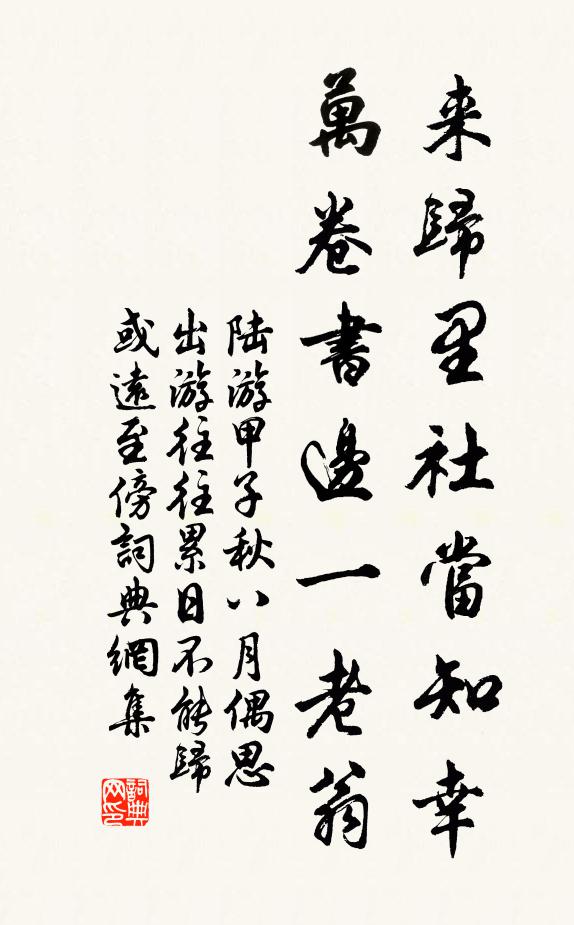 来歸里社當知幸
萬卷書邊一老翁
陆游甲子秋八月偶思
出游往往累日不能歸
或遠至傍詞典網集
詞典
网印